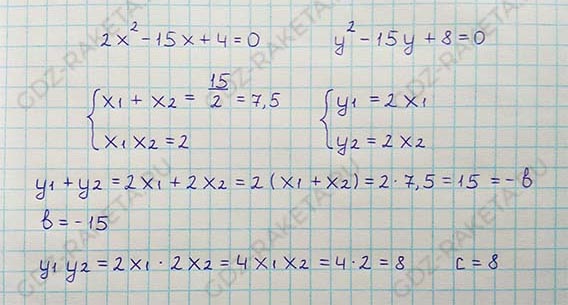 2x² - 15x + 4 = 0 y² - 15y + 8 = 0
{ x₁ + x₂ = 15/2 = 7,5 { y₁ = 2x₁
x₁x₂ = 2 y₂ = 2x₂
y₁ + y₂ = 2x₁ + 2x₂ = 2(x₁ + x₂) = 2 · 7,5 = 15 = -в
в = -15
y₁y₂ = 2x₁ · 2x₂ = 4x₁x₂ = 4 · 2 = 8 c = 8
GDZ-RAKETA.RU